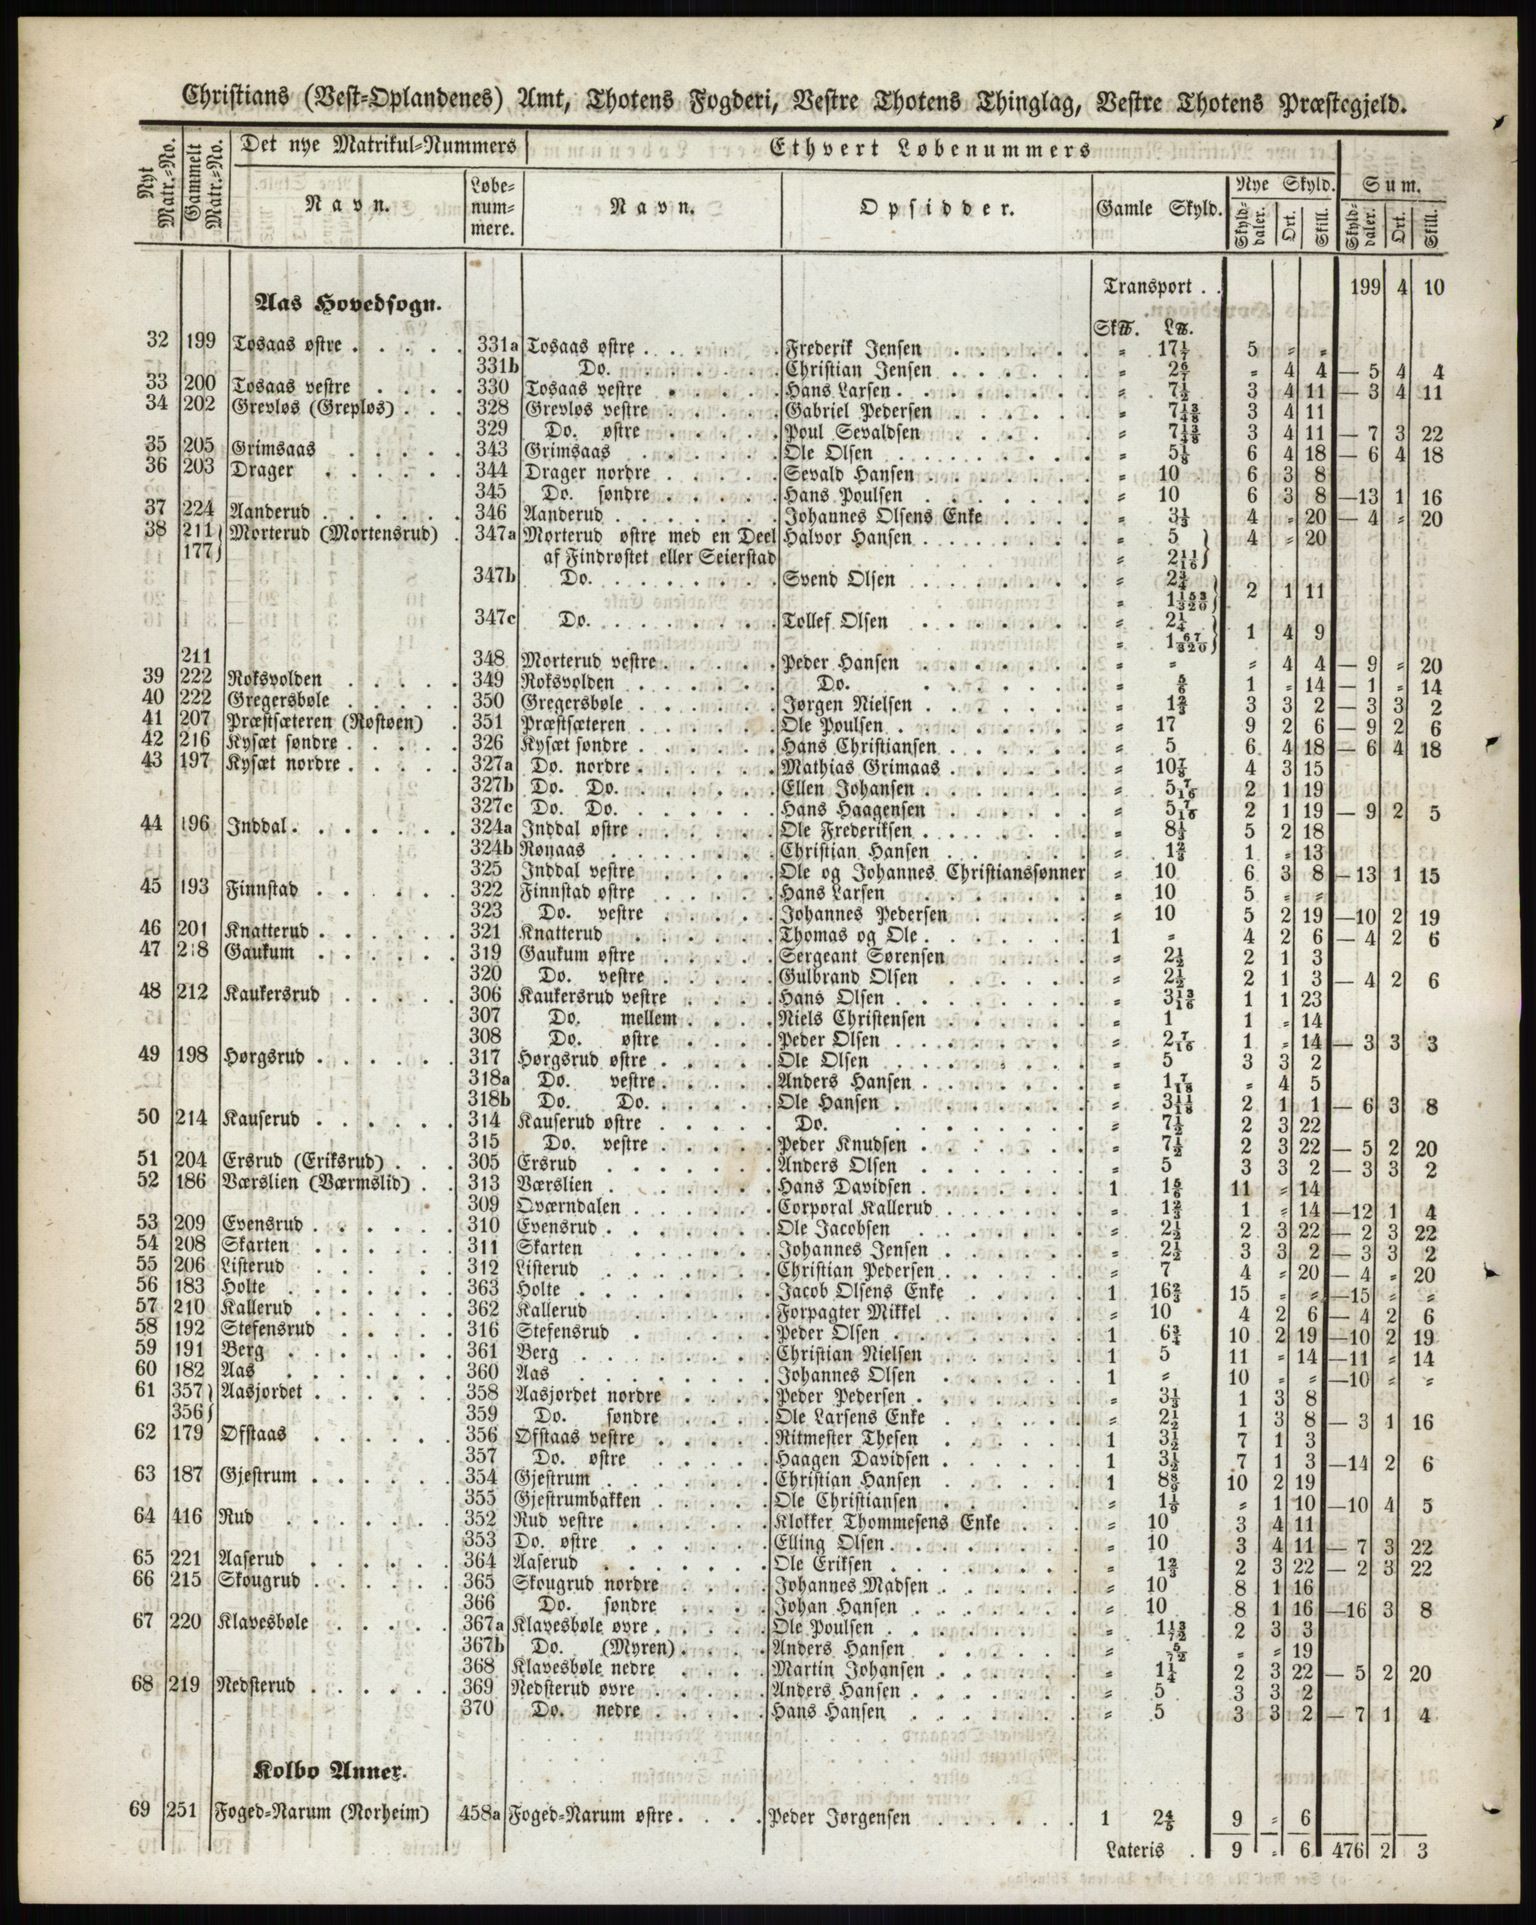 Christians (Vest-Oplandenes) Amt, Thotens Fogderi, Vestre Thotens Thinglag, Vestre Thotens Præstegjeld.
Nyt Matr.-No. Gammelt Matr.-No. Det nye Matrikul-Nummers Ethvert Løbenummers
Navn. Løbe-nummere. Navn. Opsidder. Gamle Skyld. Nye Skyld. Sum.
Skylddaler. Ort. Skill. Skylddaler. Ort. Skill.
Transport . . 199 4 10
Aas Hovedsogn.
Sk℔. L℔.
32 199 Tosaas østre . . . . . 331a Tosaas østre . . . . . Frederik Jensen . . . . . „ 17 1/7 5 „ „
331b Do. . . . . . Christian Jensen . . . . . „ 2 6/7 „ 4 4 — 5 4 4
33 200 Tosaas vestre . . . . 330 Tosaas vestre . . . . . Hans Larsen . . . . . „ 7 1/2 3 4 11 — 3 4 11
34 202 Grevløs (Grepløs) . . . 328 Grevløs vestre . . . . . Gabriel Pedersen . . . . . „ 7 13/48 3 4 11
329 Do. østre . . . . . Poul Sevaldsen . . . . „ 7 13/48 3 4 11 — 7 3 22
35 205 Grimsaas . . . . . 343 Grimsaas . . . . . Ole Olsen . . . . . „ 5 1/8 6 4 18 — 6 4 18
36 203 Drager . . . . . . 344 Drager nordre . . . . . Sevald Hansen . . . . . „ 10 6 3 8
345 Do. søndre . . . . . Hans Poulsen . . . . . „ 10 6 3 8 —13 1 16
37 224 Aanderud . . . . . . 346 Aanderud . . . . . . . Johannes Olsens Enke . . . . „ 3 1/3 4 „ 20 — 4 „ 20
38 211} Morterud (Mortensrud) . 347a Morterud østre med en Deel Halvor Hansen . . . . . . . „ 5 } 4 „ 20
177} af Findrøstet eller Seierstad „ 2 11/16 }
347b Do. . . . . . . . Svend Olsen . . . . . „ 2 3/4 } 2 1 11
„ 1 153/320 }
347c Do. . . . . . . . Tollef Olsen . . . . . „ 2 1/4 } 1 4 9
„ 1 67/320 }
211 348 Morterud vestre . . . . . Peder Hansen . . . . . „ „ „ 4 4 — 9 „ 20
39 222 Roksvolden . . . . . 349 Roksvolden . . . . . . Do. . . . . . „ 5/6 1 „ 14 — 1 „ 14
40 222 Gregersbøle . . . . . 350 Gregersbøle . . . . . . Jørgen Nielsen . . . . . „ 1 2/3 3 3 2 — 3 3 2
41 207 Præstsæteren (Røstøen) . 351 Præstsæteren . . . . . . Ole Poulsen . . . . . „ 17 9 2 6 — 9 2 6
42 216 Kysæt søndre . . . . . 326 Kysæt søndre . . . . . Hans Christiansen . . . . . „ 5 6 4 18 — 6 4 18
43 197 Kysæt nordre . . . . . 327a Do. nordre . . . . . . Mathias Grimaas . . . . . „ 10 7/8 4 3 15
327b Do. Do. . . . . . . Ellen Johansen . . . . . „ 5 7/16 2 1 19
327c Do. Do. . . . . . . Hans Haagensen . . . . . „ 5 7/16 2 1 19 — 9 2 5
44 196 Inddal . . . . . . . 324a Inddal østre . . . . . . Ole Frederiksen . . . . . „ 8 1/3 5 2 18
324b Rønaas . . . . . . Christian Hansen . . . . . „ 1 2/3 1 „ 13
325 Inddal vestre . . . . . Ole og Johannes Christianssønner „ 10 6 3 8 —13 1 15
45 193 Finnstad . . . . . . 322 Finnstad østre . . . . . Hans Larsen . . . . . „ 10 5 „ „
323 Do. vestre . . . . . Johannes Pedersen . . . . . „ 10 5 2 19 —10 2 19
46 201 Knatterud . . . . . . 321 Knatterud . . . . . Thomas og Ole . . . . . 1 „ 4 2 6 — 4 2 6
47 218 Gaukum . . . . . . 319 Gaukum østre . . . . . Sergeant Sørensen . . . . „ 2 1/2 2 1 3
320 Do. vestre . . . . . Gulbrand Olsen . . . . . „ 2 1/2 2 1 3 — 4 2 6
48 212 Kaukersrud . . . . . 306 Kaukersrud vestre . . . . Hans Olsen . . . . . „ 3 13/16 1 1 23
307 Do. mellem . . . . Niels Christensen . . . . . „ 1 1 „ 14
308 Do. østre . . . . Peder Olsen . . . . . „ 2 7/16 1 „ 14 — 3 3 3
49 198 Hørgsrud . . . . . . 317 Hørgsrud østre . . . . . Ole Olsen . . . . . „ 5 3 3 2
318a Do. vestre . . . . . Anders Hansen . . . . . „ 1 7/18 „ 4 5
318b Do. Do. . . . . . Ole Hansen . . . . . „ 3 11/18 2 1 1 — 6 3 8
50 214 Kauserud . . . . . . 314 Kauserud østre . . . . . Do. . . . . . „ 7 1/2 2 3 22
315 Do. vestre . . . . . Peder Knudsen . . . . . „ 7 1/2 2 3 22 — 5 2 20
51 204 Ersrud (Eriksrud) . . . 305 Ersrud . . . . . . Anders Olsen . . . . . „ 5 3 3 2 — 3 3 2
52 186 Værslien (Værmslid) . . 313 Værslien . . . . . . Hans Davidsen . . . . . 1 1 5/6 11 „ 14
309 Oværndalen . . . . . . Corporal Kallerud . . . . . „ 1 2/3 1 „ 14 —12 1 4
53 209 Evensrud . . . . . . 310 Evensrud . . . . . . Ole Jacobsen . . . . . „ 2 1/2 2 3 22 — 2 3 22
54 208 Skarten . . . . . . 311 Skarten . . . . . . Johannes Jensen . . . . . „ 2 1/2 3 3 2 — 3 3 2
55 206 Listerud . . . . . . 312 Listerud . . . . . . Christian Pedersen . . . . . „ 7 4 „ 20 — 4 „ 20
56 183 Holte . . . . . . 363 Holte . . . . . . . Jacob Olsens Enke . . . . 1 16 2/3 15 „ „ —15 „ „
57 210 Kallerud . . . . . . 362 Kallerud . . . . . . Forpagter Mikkel . . . . . „ 10 4 2 6 — 4 2 6
58 192 Stefensrud . . . . . 316 Stefensrud . . . . . . Peder Olsen . . . . . 1 6 3/4 10 2 19 —10 2 19
59 191 Berg . . . . . . . 361 Berg . . . . . . . Christian Nielsen . . . . . 1 5 11 „ 14 —11 „ 14
60 182 Aas . . . . . . . 360 Aas . . . . . . . Johannes Olsen . . . . . 1 „ 10 „ „ —10 „ „
61 357} Aasjordet . . . . . . 358 Aasjordet nordre . . . . Peder Pedersen . . . . . „ 3 1/3 1 3 8
356} 359 Do. søndre . . . . Ole Larsens Enke . . . . . „ 2 1/2 1 3 8 — 3 1 16
62 179 Ofstaas . . . . . . 356 Ofstaas vestre . . . . . Ritmester Thesen . . . . . 1 3 1/2 7 1 3
357 Do. østre . . . . . Haagen Davidsen . . . . . 1 3 1/2 7 1 3 —14 2 6
63 187 Gjestrum . . . . . . 354 Gjestrum . . . . . . Christian Hansen . . . . . 1 8 8/9 10 2 19
355 Gjestrumbakken . . . . . Ole Christiansen . . . . . „ 1 1/9 „ 1 10 —10 4 5
64 416 Rud . . . . . . . 352 Rud vestre . . . . . . Klokker Thommesens Enke . . . „ 10 3 4 11
353 Do. østre . . . . . . Elling Olsen . . . . . „ 10 3 4 11 — 7 3 22
65 221 Aaserud . . . . . . 364 Aaserud . . . . . . Ole Eriksen . . . . . „ 1 2/3 2 3 22 — 2 3 22
66 215 Skougrud . . . . . . 365 Skougrud nordre . . . . Johannes Madsen . . . . . „ 10 8 1 16
366 Do. søndre . . . . Johan Hansen . . . . . „ 10 8 1 16 —16 3 8
67 220 Klavesbøle . . . . . 367a Klavesbøle øvre . . . . . Ole Poulsen . . . . . „ 1 13/72 2 3 3
367b Do. (Myren) . . . . Anders Hansen . . . . . „ 5/72 „ „ 19
368 Klavesbøle nedre . . . . Martin Johansen . . . . . „ 1 1/4 2 3 22 — 5 2 20
68 219 Nedsterud . . . . . . 369 Nedsterud øvre . . . . . Anders Hansen . . . . . „ 5 3 3 2
370 Do. nedre . . . . . Hans Hansen . . . . . „ 5 3 3 2 — 7 1 4
Kolbo Annex.
69 251 Foged-Narum (Norheim) 458a Foged-Narum østre . . . . Peder Jørgensen . . . . . 1 2 4/5 9 „ 6
Lateris . 9 „ 6 476 2 3